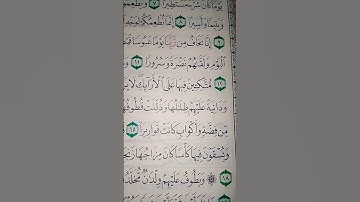 يَوْمًا كَانَ شَرُّهُۥ مُسْتَطِيرًا ٧ وَيُطْعِمُو
وَيَتِيمًا وَأَسِيرًا ٨ إِنَّمَا نُطْعِمُكُمْ لِوَجْهِ
٩ إِنَّا نَخَافُ مِن رَّبِّنَا يَوْمًا عَبُوسًا
ٱلْيَوْمِ وَلَقَّىٰهُمْ نَضْرَةً وَسُرُورًا ١١
١٢ مُّتَّكِـِٔينَ فِيهَا عَلَى ٱلْأَرَآئِكِ لَا يَر
وَدَانِيَةً عَلَيْهِمْ ظِلَٰلُهَا وَذُلِّلَتْ قُطُوفُهَ
مِّن فِضَّةٍ وَأَكْوَابٍ كَانَتْ قَوَارِيرَا۠ ١٥
وَيُسْقَوْنَ فِيهَا كَأْسًا كَانَ مِزَاجُهَا زَنجَ
١٨ ۞ وَيَطُوفُ عَلَيْهِمْ وِلْدَٰنٌ مُّخَلَّدُ